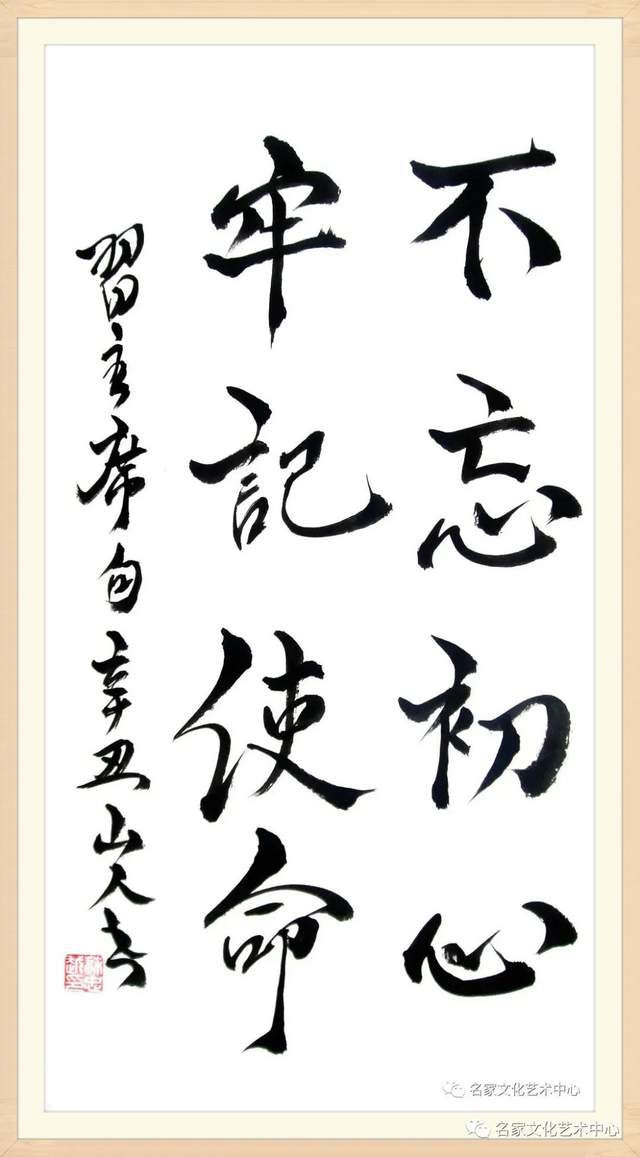 不忘初心
牢記使命
習主席句辛丑山人书
名家文化艺术中心
名家文化艺术中心